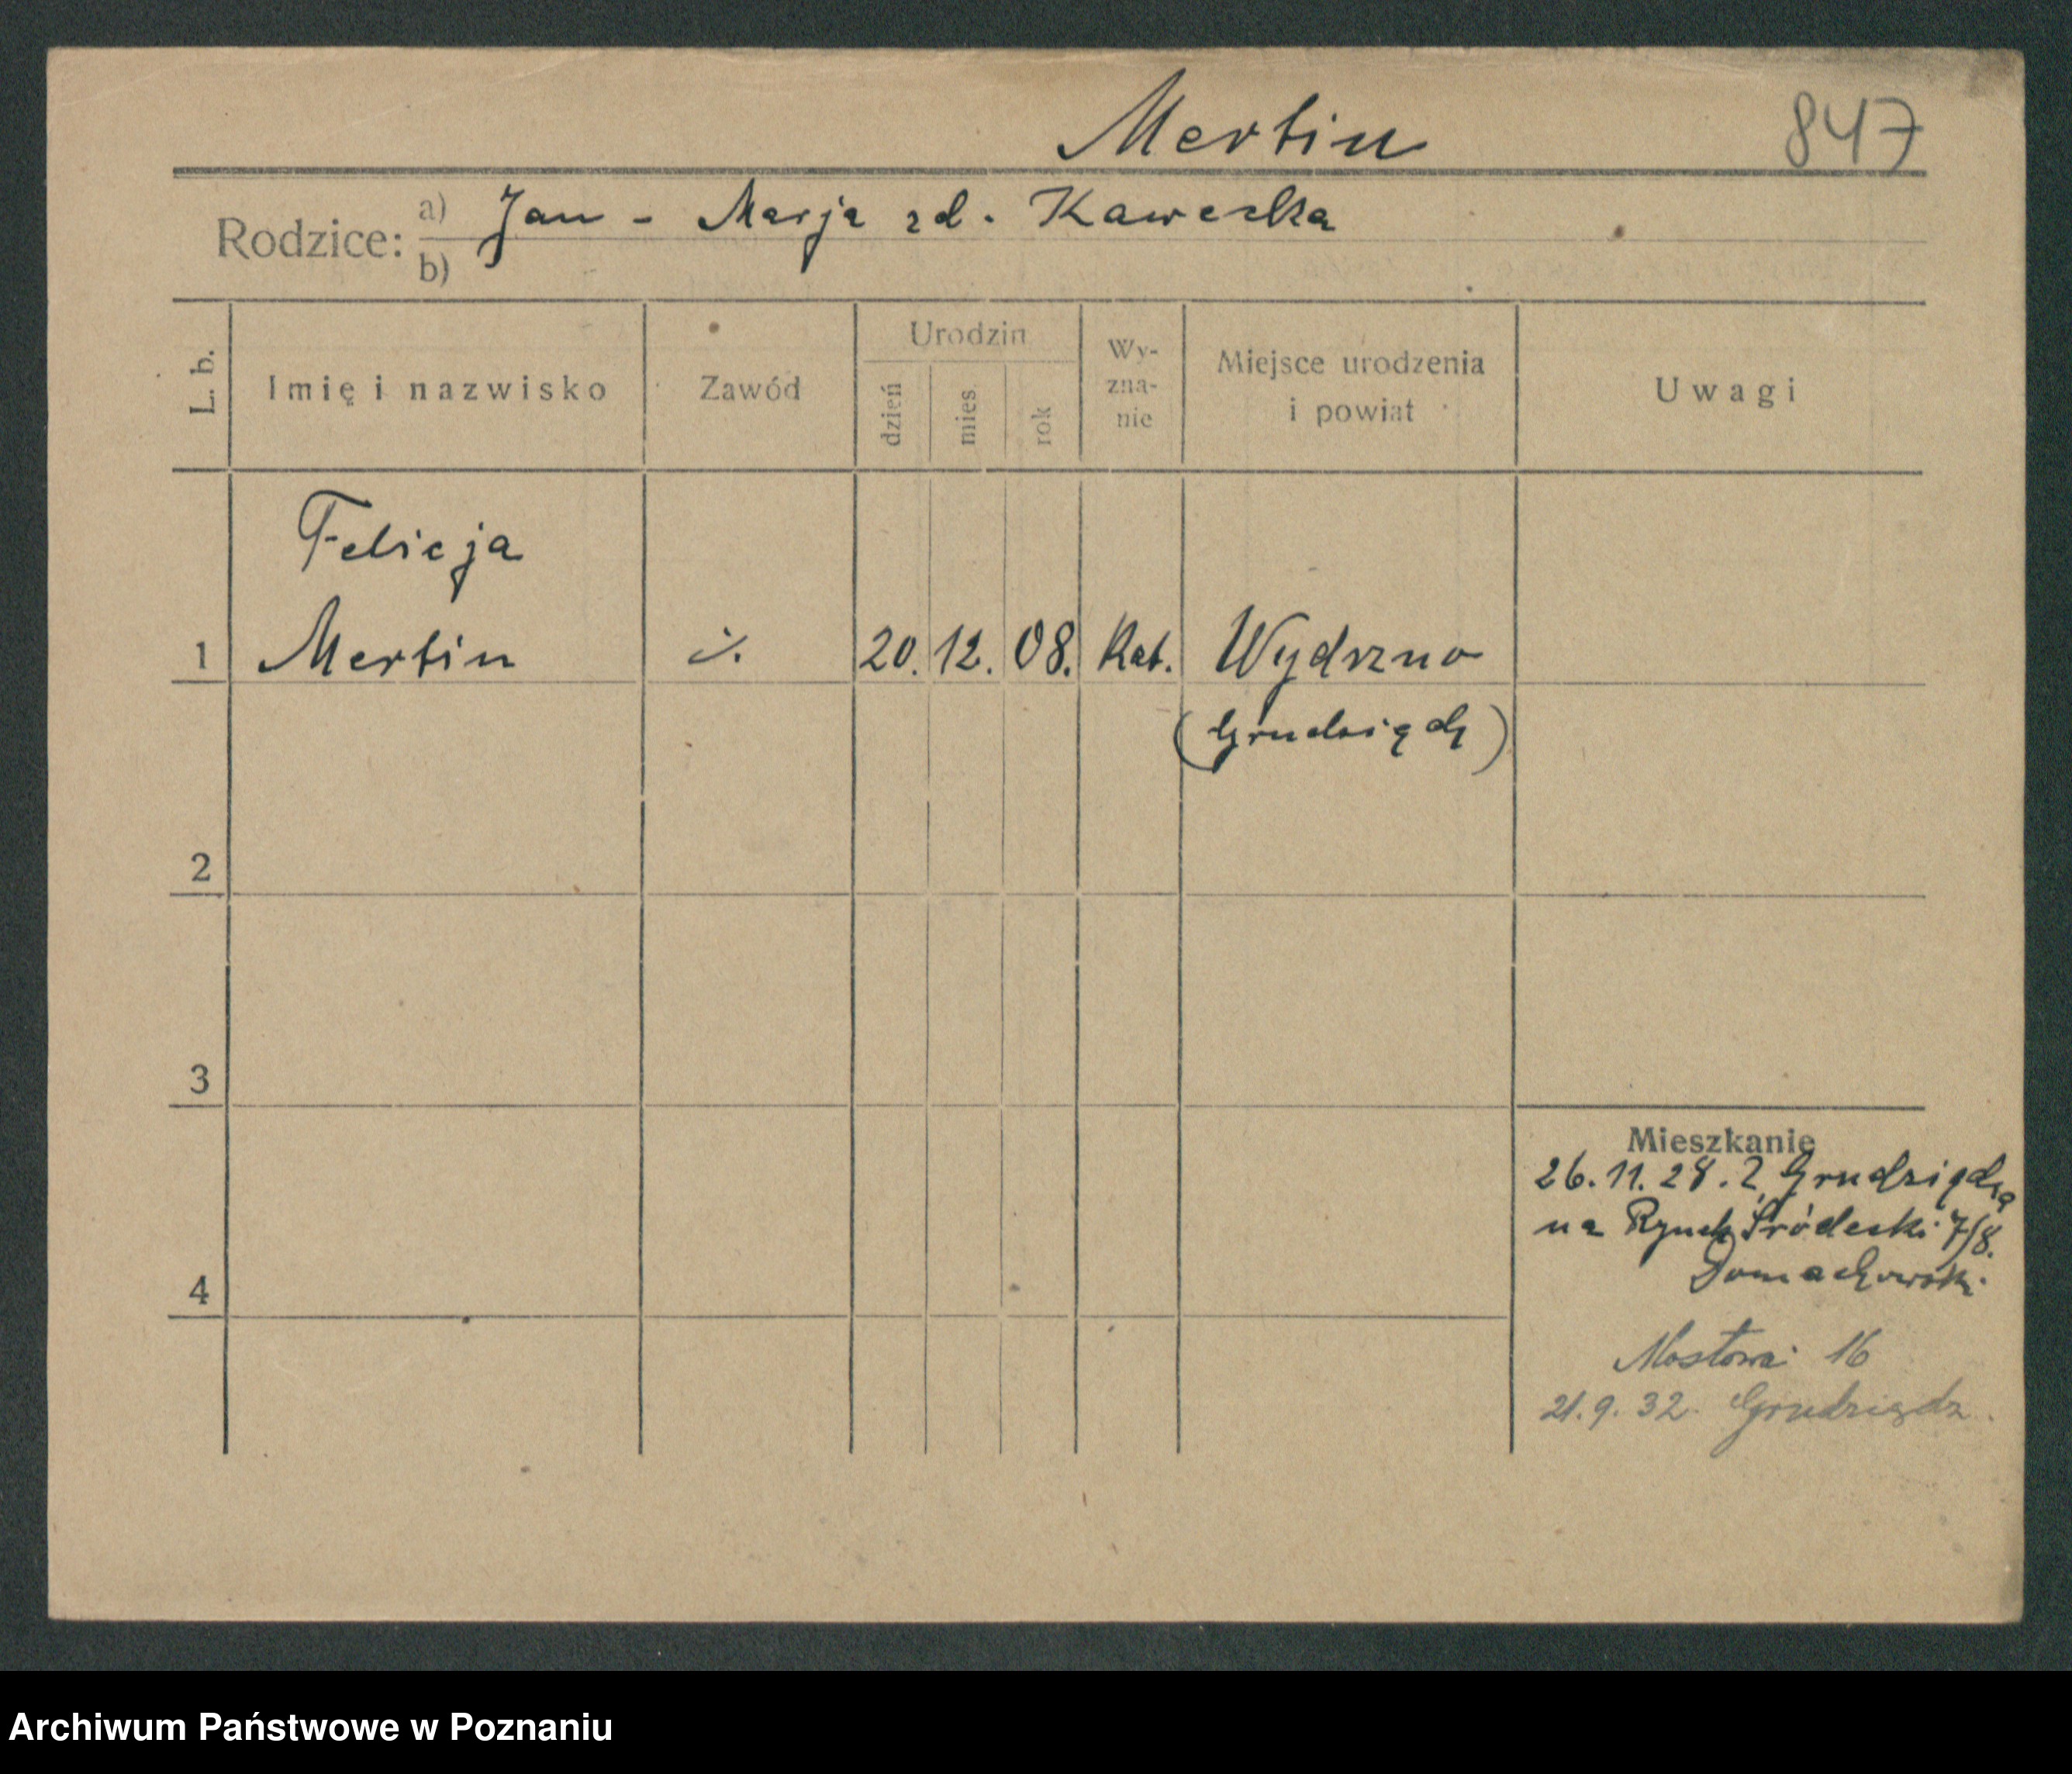 Mertin 847
Rodzice: a) Jan - Marja zd. Kawecka
b)
L. b. Imię i nazwisko Zawód Urodzin dzień mies. rok Wy-zna-nie Miejsce urodzenia i powiat Uwagi
Felicja
1 Mertin ·/. 20. 12. 08. Kat. Wydrzno
(Grudziądz)
2
3
Mieszkanie
26.11.28. Z Grudziądza
na Rynek Śródecki 7/8.
4 Domachowski
Mostowa 16
21.9.32. Grudziądz.
Archiwum Państwowe w Poznaniu